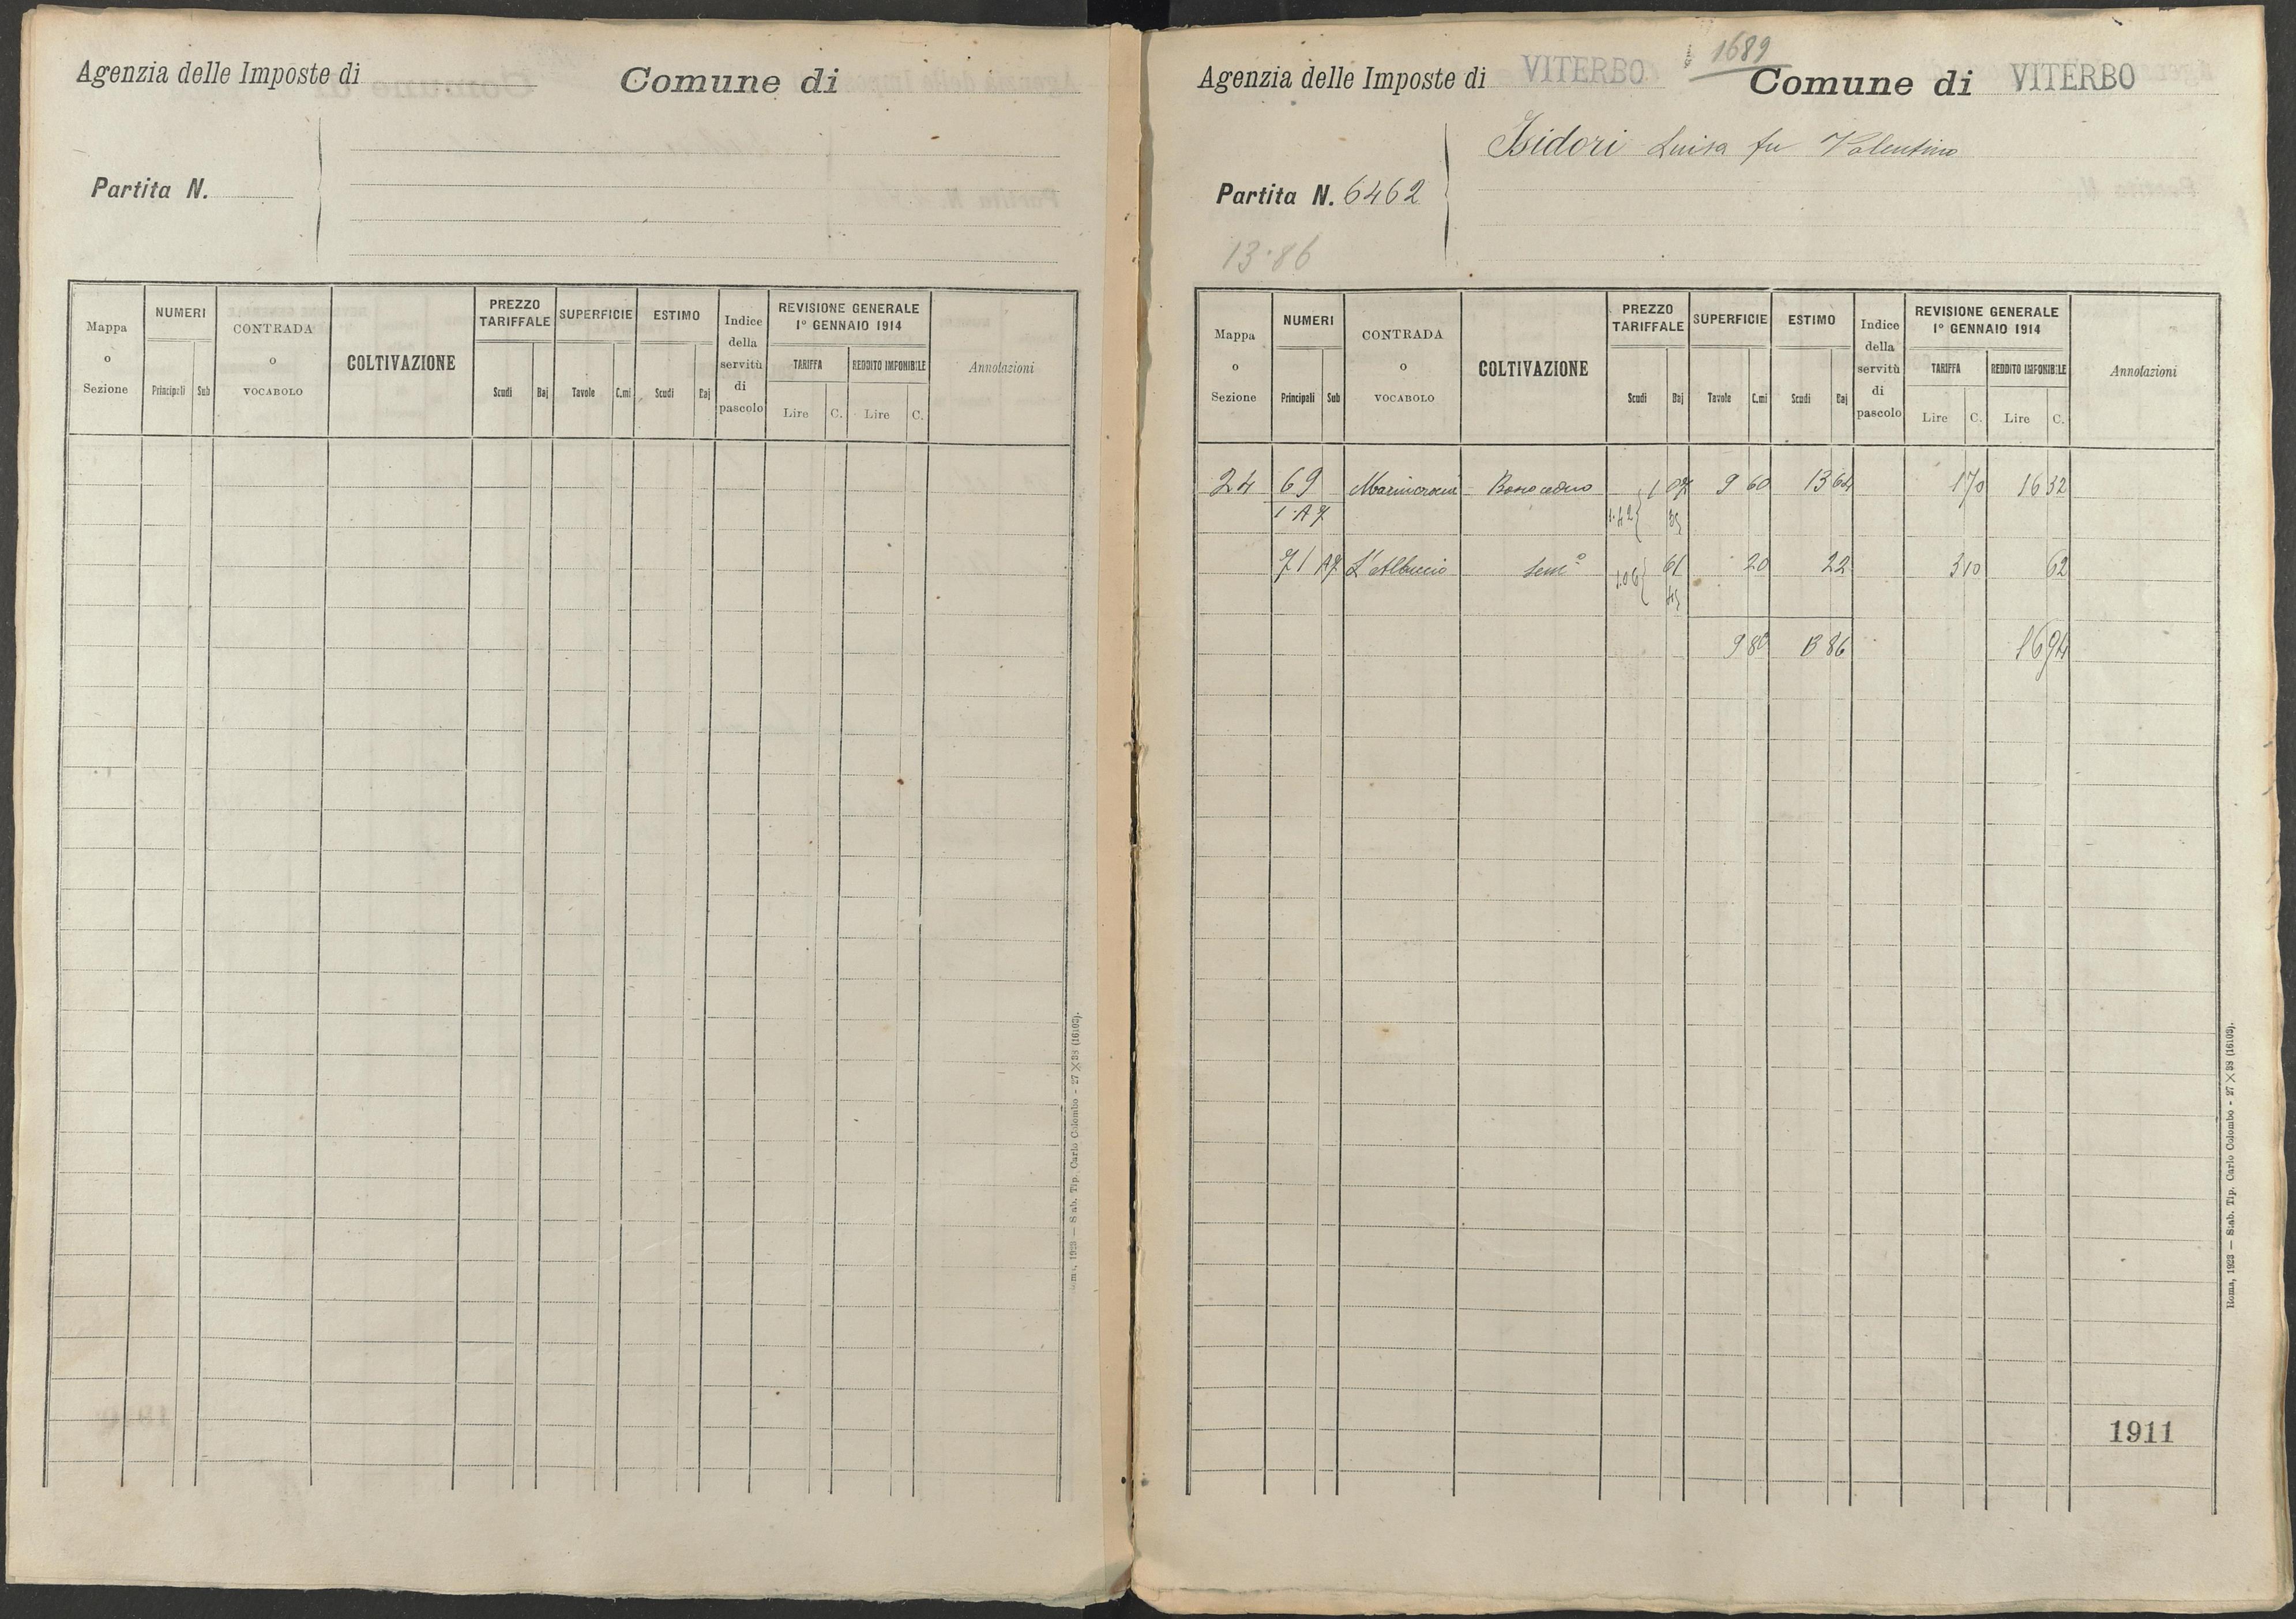 Agenzia delle Imposte di
Comune di
Partita N.
Mappa o Sezione
NUMERI
Principali Sub
CONTRADA o VOCABOLO
COLTIVAZIONE
PREZZO TARIFFALE
Scudi Baj
SUPERFICIE
Tavole C.mi
ESTIMO
Scudi Baj
Indice della servitù di pascolo
REVISIONE GENERALE
1° GENNAIO 1914
TARIFFA
Lire C.
REDDITO IMPONIBILE
Lire C.
Annotazioni
1923 — Stab. Tip. Carlo Colombo - 27 × 38 (16103).
1689
Agenzia delle Imposte di VITERBO
Comune di VITERBO
Isidori Luisa fu Valentino
Partita N. 6462
13.86
Mappa o Sezione
NUMERI
Principali Sub
CONTRADA o VOCABOLO
COLTIVAZIONE
PREZZO TARIFFALE
Scudi Baj
SUPERFICIE
Tavole C.mi
ESTIMO
Scudi Baj
Indice della servitù di pascolo
REVISIONE GENERALE
1° GENNAIO 1914
TARIFFA
Lire C.
REDDITO IMPONIBILE
Lire C.
Annotazioni
24 69 Bosco ceduo 1 07 9 60 13 64 1 70 16 32
1.42 35
71 L'Albucio Sem° 61 20 22 3 10 62
1.06 45
9 80 13 86 16 94
1911
Roma, 1923 — Stab. Tip. Carlo Colombo - 27 × 38 (16103).